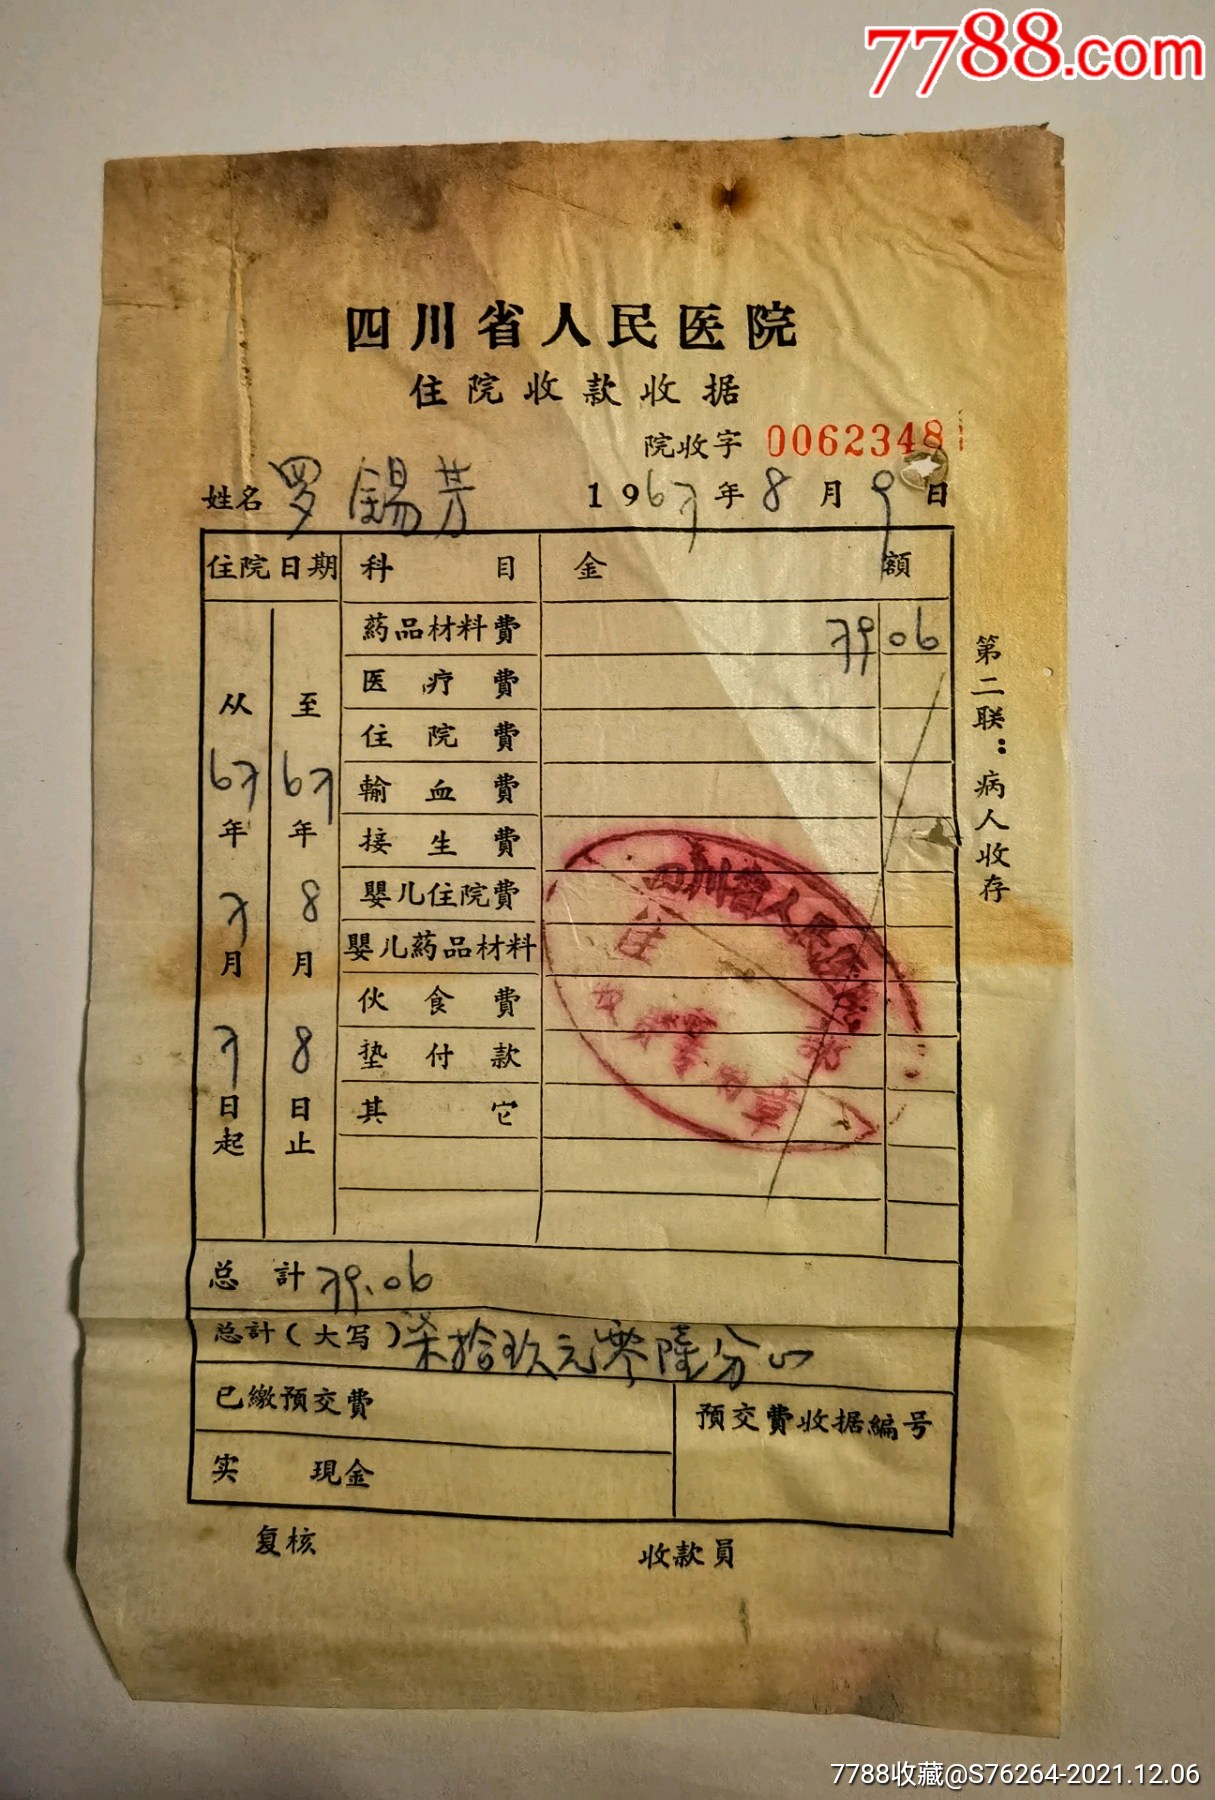 7788.com
四川省人民医院
住院收款收据
院收字 0062348
姓名 罗锡芳 1967年8月9日
住院日期 科目 金額
从67年7月7日起
至67年8月8日止
药品材料費 79 06
医疗費
住院費
輸血費
接生費
嬰儿住院費
嬰儿药品材料
伙食費
垫付款
其它
四川省人民医院
住
专用章
第二联：病人收存
总計 79.06
总計（大写）柒拾玖元零陸分
已缴預交費
預交費收据編号
实 現金
复核 收款員
7788收藏@S76264-2021.12.06